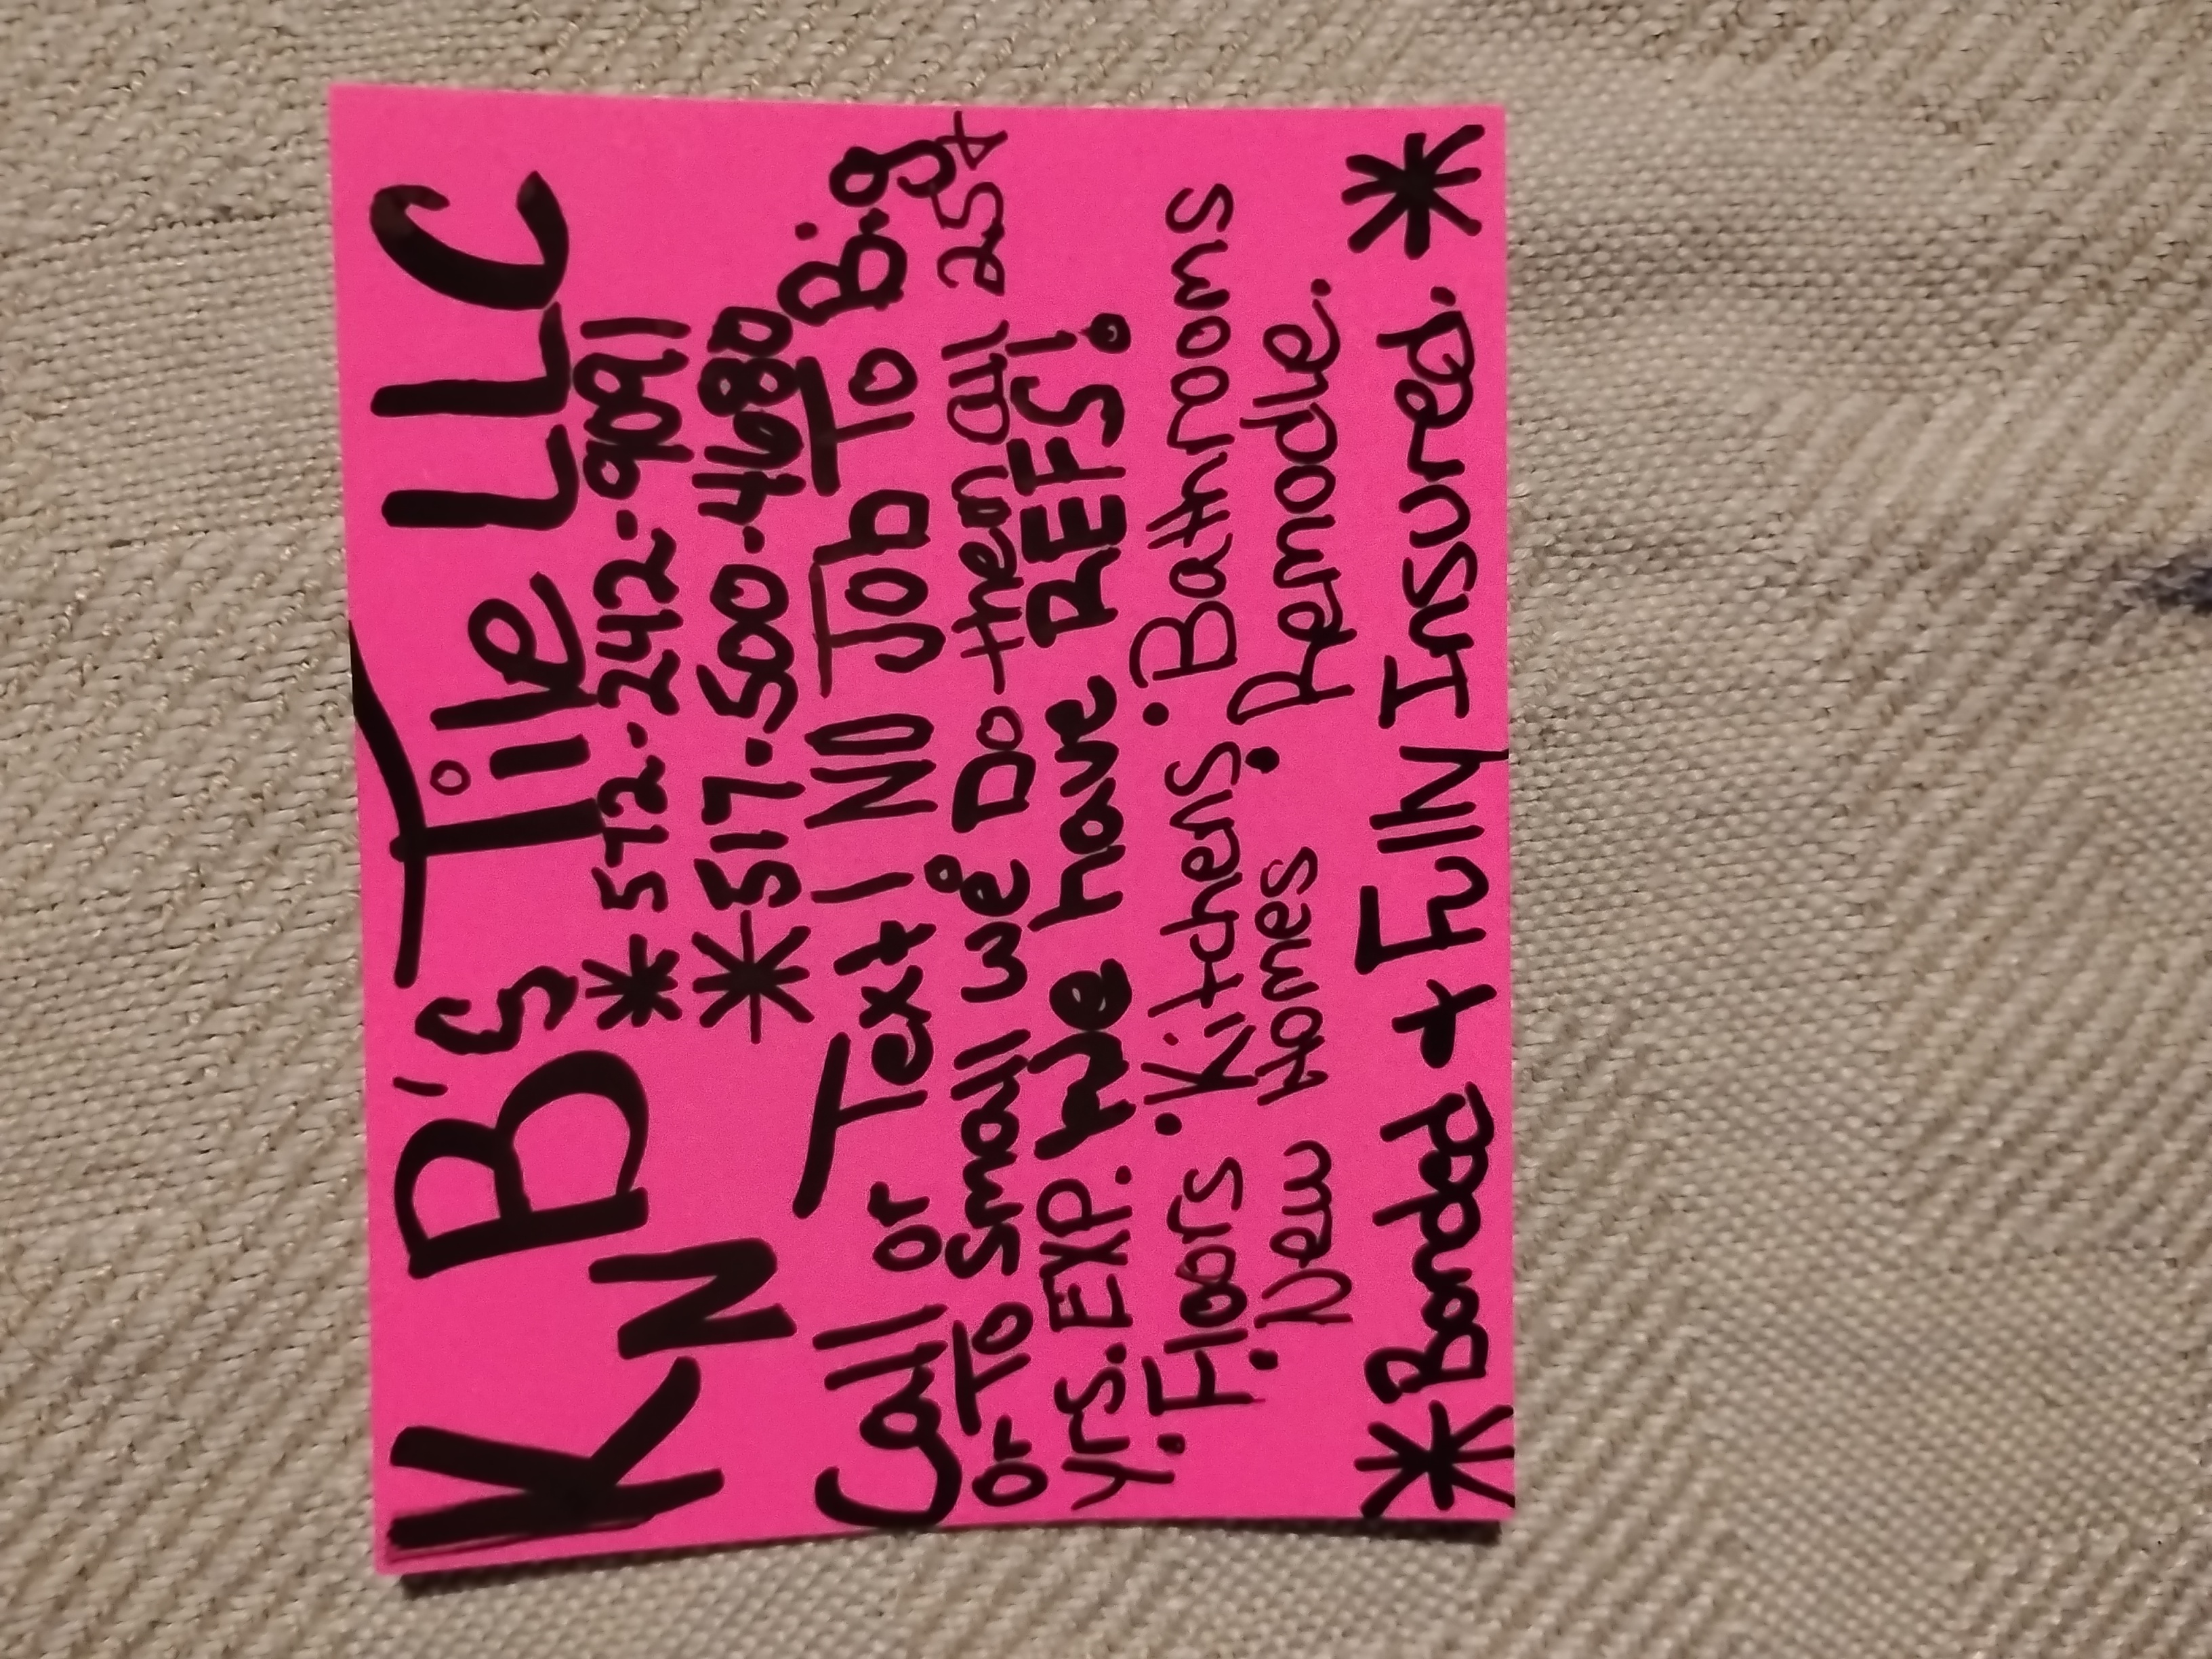 KNB's Tile LLC
* 572-242-9091
* 517-500-4680
Call or Text! NO Job To Big
or To Small we Do them all 25+
yrs. EXP. We have REFS!
• Floors • Kitchens • Bathrooms
• New Homes • Remodle.
* Bonded + Fully Insured. *